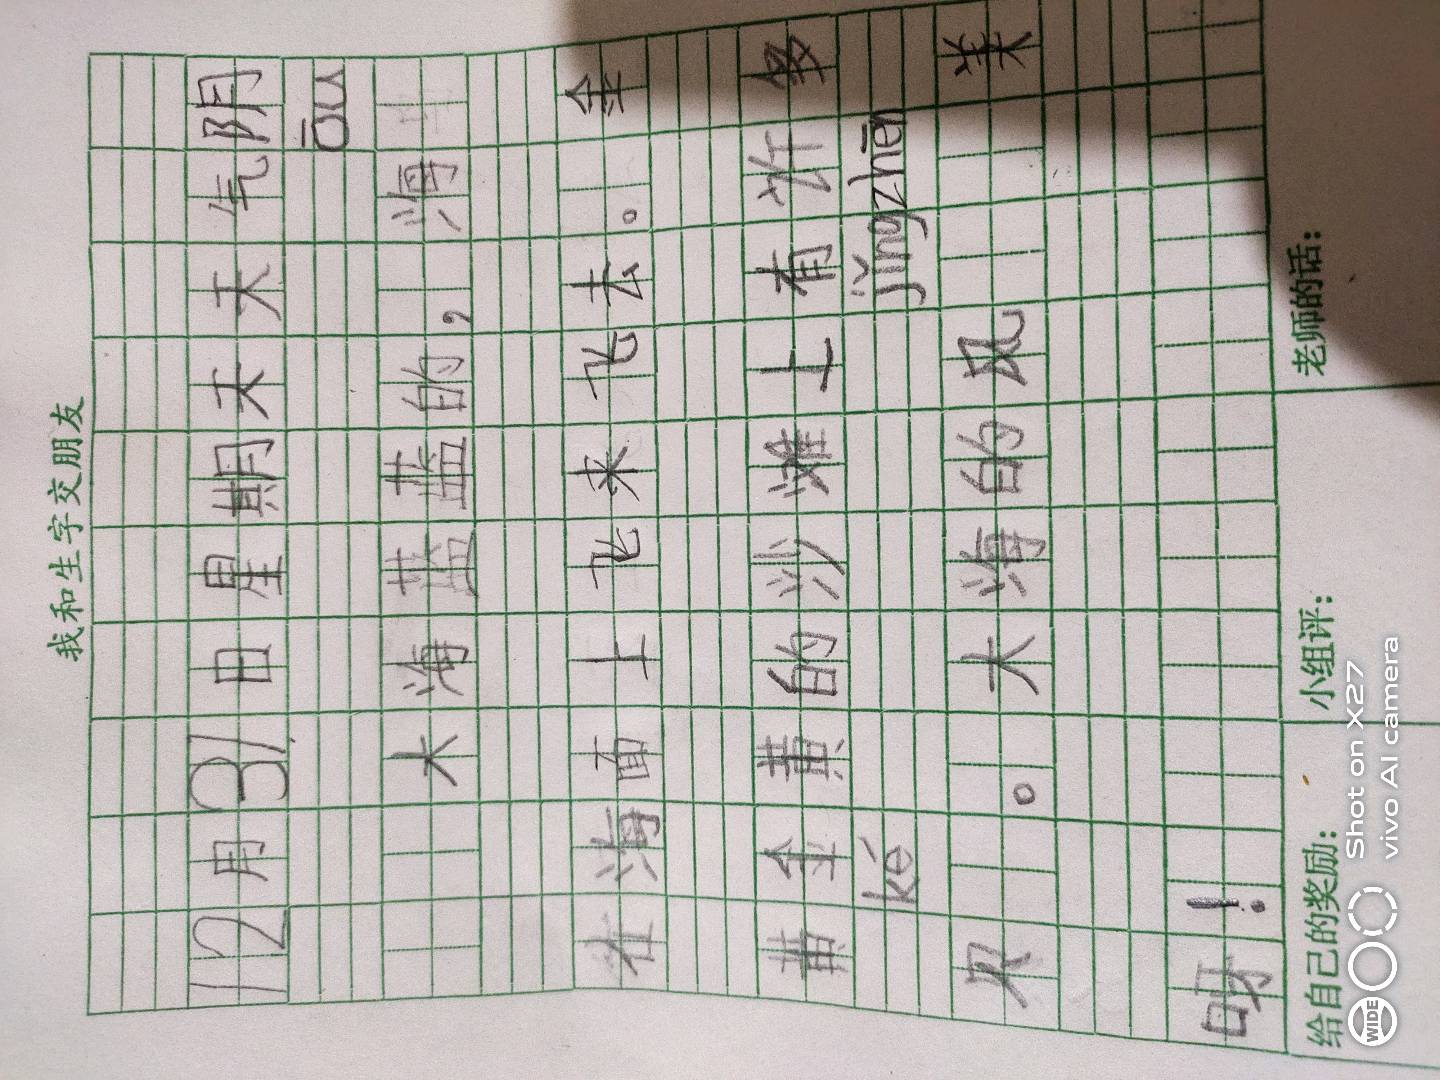 我和生字交朋友
12月31日星期天天气阴
ōu
大海蓝蓝的，海
在海面上飞来飞去。金
黄金黄的沙滩上有许多
ké jǐngzhēn
贝。大海的风美
呀！
给自己的奖励： 小组评： 老师的话：
Shot on X27
vivo AI camera
WIDE